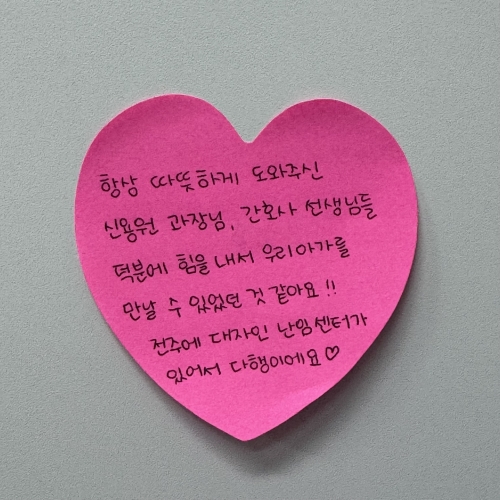 항상 따뜻하게 도와주신
신용원 과장님, 간호사 선생님들
덕분에 힘을 내서 우리아가를
만날 수 있었던 것 같아요!!
전주에 대자인 난임센터가
있어서 다행이에요♡